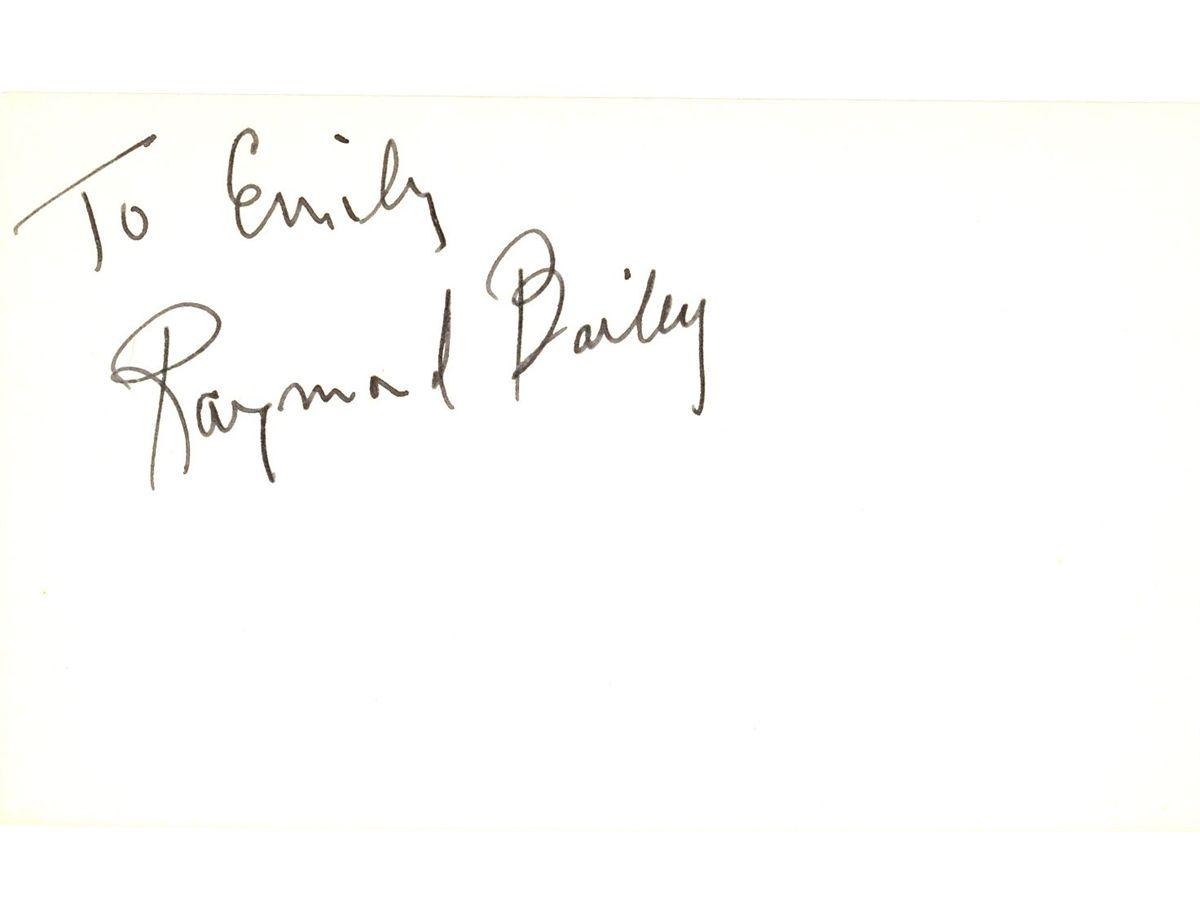 To Emily
Raymond Bailey